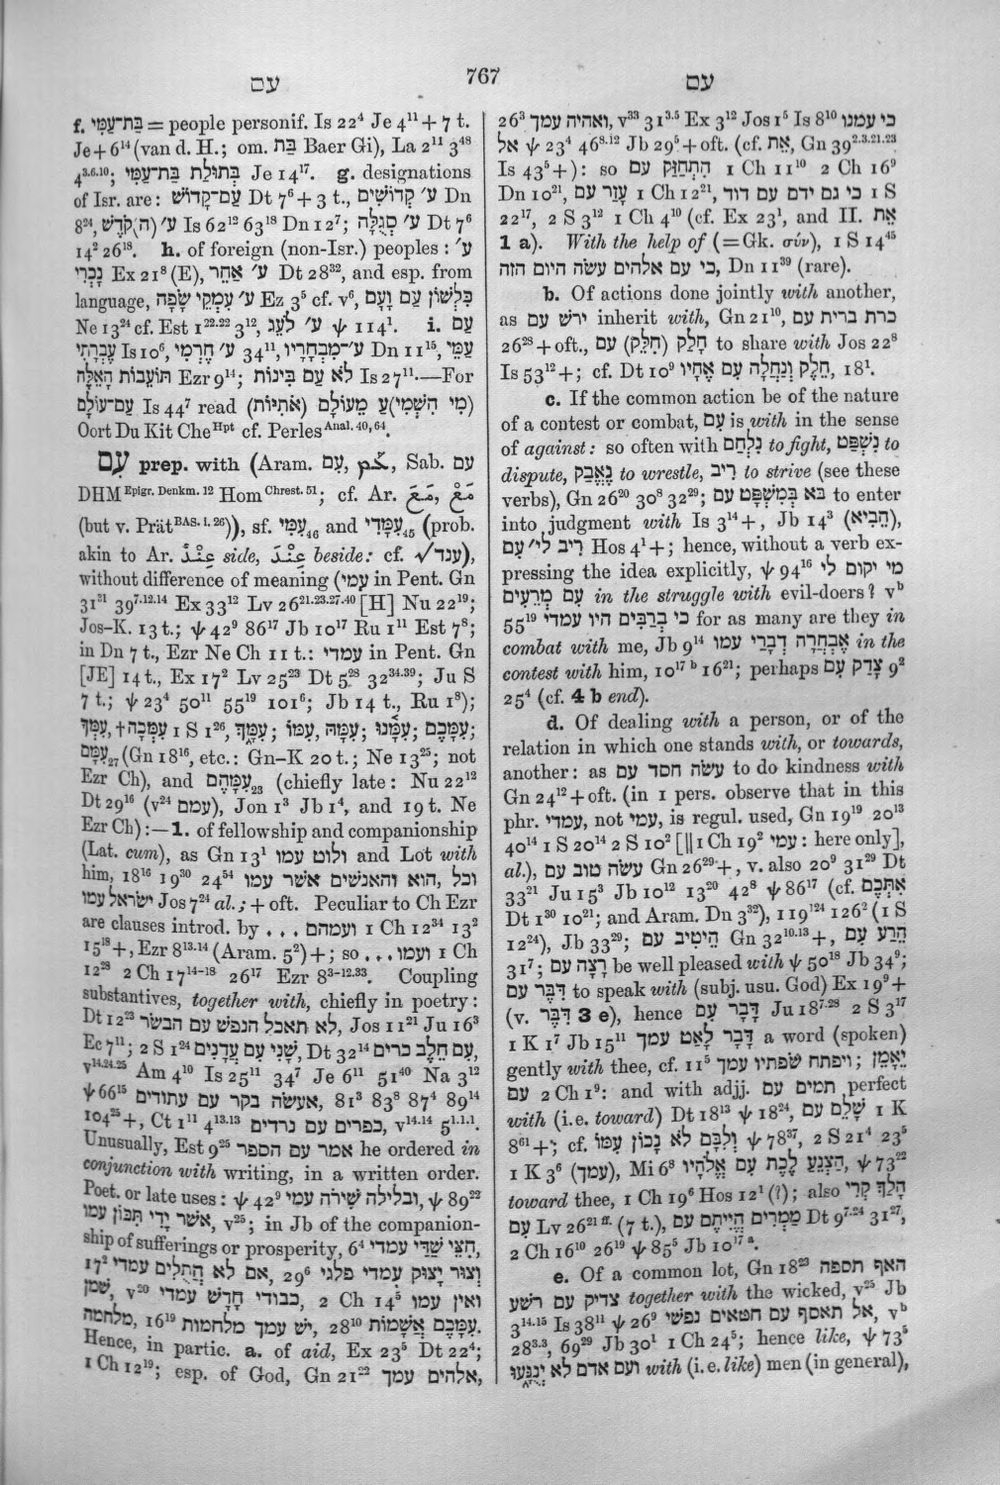 עם
767
עם
f. בַּת־עַמִּי = people personif. Is 22⁴ Je 4¹¹ + 7 t.
Je + 6¹⁴ (van d. H.; om. בַּת Baer Gi), La 2¹¹ 3⁴⁸
4³·⁶·¹⁰; בְּתוּלַת בַּת־עַמִּי Je 14¹⁷. g. designations
of Isr. are: עַם־קָדוֹשׁ Dt 7⁶ + 3 t., ע׳ קְדוֹשִׁים Dn
8²⁴, ע׳ (ה)קֹדֶשׁ Is 62¹² 63¹⁸ Dn 12⁷; ע׳ סְגֻלָּה Dt 7⁶
14² 26¹⁸. h. of foreign (non-Isr.) peoples: ע׳
נָכְרִי Ex 21⁸ (E), ע׳ אַחֵר Dt 28³², and esp. from
language, ע׳ עִמְקֵי שָׂפָה Ez 3⁵ cf. v⁶, כִּלְשׁוֹן עַם וָעָם
Ne 13²⁴ cf. Est 1²²·²² 3¹², ע׳ לֹעֵז ψ 114¹. i. עַם
עֶבְרָתִי Is 10⁶, ע׳ חֶרְמִי 34¹¹, עַם־מִבְחָרָיו Dn 11¹⁵, עַמֵּי
תּוֹעֵבוֹת הָאֵלֶּה Ezr 9¹⁴; לֹא עַם בִּינוֹת Is 27¹¹.—For
עַם־עוֹלָם Is 44⁷ read (מִי הִשְׁמִי)עַ מֵעוֹלָם (אֹתִיּוֹת)
Oort Du Kit Che Hpt cf. Perles Anal. 40, 64.
עִם prep. with (Aram. עִם, ܥܡ, Sab. עם
DHM Epigr. Denkm. 12 Hom Chrest. 51; cf. Ar. مَعَ, مَعْ
(but v. Prät BAS. i. 26)), sf. עִמִּי₄₆ and עִמָּדִי₄₅ (prob.
akin to Ar. عِنْدٌ side, عِنْدَ beside: cf. √ ענד),
without difference of meaning (עמי in Pent. Gn
31³¹ 39⁷·¹²·¹⁴ Ex 33¹² Lv 26²¹·²³·²⁷·⁴⁰ [H] Nu 22¹⁹;
Jos–K. 13 t.; ψ 42⁹ 86¹⁷ Jb 10¹⁷ Ru 1¹¹ Est 7⁸;
in Dn 7 t., Ezr Ne Ch 11 t.: עמדי in Pent. Gn
[JE] 14 t., Ex 17² Lv 25²³ Dt 5²⁸ 32³⁴·³⁹; Ju S
7 t.; ψ 23⁴ 50¹¹ 55¹⁹ 101⁶; Jb 14 t., Ru 1⁸);
עִמְּךָ, †עִמְּכָה 1 S 1²⁶, עִמָּךְ; עִמּוֹ, עִמָּהּ; עִמָּנוּ; עִמָּכֶם;
עִמָּם₂₇ (Gn 18¹⁶, etc.: Gn–K 20 t.; Ne 13²⁵; not
Ezr Ch), and עִמָּהֶם₂₃ (chiefly late: Nu 22¹²
Dt 29¹⁶ (v²⁴ עמם), Jon 1³ Jb 1⁴, and 19 t. Ne
Ezr Ch):—1. of fellowship and companionship
(Lat. cum), as Gn 13¹ ולוט עמו and Lot with
him, 18¹⁶ 19³⁰ 24⁵⁴ הוא והאנשים אשר עמו, וכל
ישראל עמו Jos 7²⁴ al.; + oft. Peculiar to Ch Ezr
are clauses introd. by ... ועמהם 1 Ch 12³⁴ 13²
15¹⁸ +, Ezr 8¹³·¹⁴ (Aram. 5²) +; so ... ועמו 1 Ch
12²⁸ 2 Ch 17¹⁴⁻¹⁸ 26¹⁷ Ezr 8³⁻¹²·³³. Coupling
substantives, together with, chiefly in poetry:
Dt 12²³ לא תאכל הנפש עם הבשר, Jos 11²¹ Ju 16³
Ec 7¹¹; 2 S 1²⁴ שָׁנִי עִם עֲדָנִים, Dt 32¹⁴ עִם חֵלֶב כרים,
v¹⁴·²⁴·²⁵ Am 4¹⁰ Is 25¹¹ 34⁷ Je 6¹¹ 51⁴⁰ Na 3¹²
ψ 66¹⁵ אעשה בקר עם עתודים, 81³ 83⁸ 87⁴ 89¹⁴
104²⁵ +, Ct 1¹¹ 4¹³·¹³ כפרים עם נרדים, v¹⁴·¹⁴ 5¹·¹·¹.
Unusually, Est 9²⁵ אמר עם הספר he ordered in
conjunction with writing, in a written order.
Poet. or late uses: ψ 42⁹ ובלילה שִׁירֹה עמי, ψ 89²²
אשר יָדִי תִּכּוֹן עמו, v²⁵; in Jb of the companion-
ship of sufferings or prosperity, 6⁴ חִצֵּי שַׁדַּי עמדי,
17² אם לא הֲתֻלִים עמדי, 29⁶ וְצוּר יָצוּק עמדי פלגי
שמן, v²⁰ כבודי חָדָשׁ עמדי, 2 Ch 14⁵ ואין עמו
מלחמה, 16¹⁹ יש עמך מלחמות, 28¹⁰ עִמָּכֶם אֲשָׁמוֹת.
Hence, in partic. a. of aid, Ex 23⁵ Dt 22⁴;
1 Ch 12¹⁹; esp. of God, Gn 21²² אלהים עמך,
26³ ואהיה עמך, v³³ 31³·⁵ Ex 3¹² Jos 1⁵ Is 8¹⁰ כי עמנו
אל ψ 23⁴ 46⁸·¹² Jb 29⁵ + oft. (cf. את, Gn 39²·³·²¹·²³
Is 43⁵ +): so הִתְחַזֵּק עם 1 Ch 11¹⁰ 2 Ch 16⁹
Dn 10²¹, עָזַר עם 1 Ch 12²¹, כי גם ידם עם דוד 1 S
22¹⁷, 2 S 3¹² 1 Ch 4¹⁰ (cf. Ex 23¹, and II. אֵת
1 a). With the help of (= Gk. σύν), 1 S 14⁴⁵
כי עם אלהים עשה היום הזה, Dn 11³⁹ (rare).
b. Of actions done jointly with another,
as ירשׁ עם inherit with, Gn 21¹⁰, כרת ברית עם
26²⁸ + oft., חָלַק (חִלֵּק) עם to share with Jos 22⁸
Is 53¹² +; cf. Dt 10⁹ חֵלֶק וְנַחֲלָה עִם אֶחָיו, 18¹.
c. If the common action be of the nature
of a contest or combat, עִם is with in the sense
of against: so often with נִלְחַם to fight, נִשְׁפַּט to
dispute, נֶאֱבַק to wrestle, רִיב to strive (see these
verbs), Gn 26²⁰ 30⁸ 32²⁹; בּא בְּמִשְׁפָּט עם to enter
into judgment with Is 3¹⁴ +, Jb 14³ (הֵבִיא),
ריב לי׳ עִם Hos 4¹ +; hence, without a verb ex-
pressing the idea explicitly, ψ 94¹⁶ מי יקום לי
עִם מְרֵעִים in the struggle with evil-doers? vᵇ
55¹⁹ כי בְרַבִּים היו עמדי for as many are they in
combat with me, Jb 9¹⁴ אֶבְחֲרָה דְבָרַי עמו in the
contest with him, 10¹⁷ ᵇ 16²¹; perhaps צָדַק עִם 9²
25⁴ (cf. 4 b end).
d. Of dealing with a person, or of the
relation in which one stands with, or towards,
another: as עשׂה חסד עם to do kindness with
Gn 24¹² + oft. (in 1 pers. observe that in this
phr. עמדי, not עמי, is regul. used, Gn 19¹⁹ 20¹³
40¹⁴ 1 S 20¹⁴ 2 S 10² [‖ 1 Ch 19² עמי: here only],
al.), עשׂה טוב עם Gn 26²⁹ +, v. also 20⁹ 31²⁹ Dt
33²¹ Ju 15³ Jb 10¹² 13²⁰ 42⁸ ψ 86¹⁷ (cf. אִתְּכֶם
Dt 1³⁰ 10²¹; and Aram. Dn 3³²), 119¹²⁴ 126² (1 S
12²⁴), Jb 33²⁹; הֵיטִיב עם Gn 32¹⁰·¹³ +, הֵרַע עִם
31⁷; רָצָה עם be well pleased with ψ 50¹⁸ Jb 34⁹;
דִּבֶּר עם to speak with (subj. usu. God) Ex 19⁹ +
(v. דִּבֶּר 3 e), hence דָּבָר עִם Ju 18⁷·²⁸ 2 S 3¹⁷
1 K 1⁷ Jb 15¹¹ דָּבָר לָאַט עמך a word (spoken)
gently with thee, cf. 11⁵ ויפתח שׂפתיו עמך; יֵאָמֵן
עם 2 Ch 1⁹: and with adjj. תמים עם perfect
with (i.e. toward) Dt 18¹³ ψ 18²⁴, שָׁלֵם עם 1 K
8⁶¹ +; cf. וְלִבָּם לֹא נָכוֹן עִמּוֹ ψ 78³⁷, 2 S 21⁴ 23⁵
1 K 3⁶ (עמך), Mi 6⁸ הַצְנֵעַ לֶכֶת עִם אֱלֹהֶיךָ, ψ 73²²
toward thee, 1 Ch 19⁶ Hos 12¹ (?); also הָלַךְ קֶרִי
עִם Lv 26²¹ ff. (7 t.), מַמְרִים הֱיִיתֶם עם Dt 9⁷·²⁴ 31²⁷,
2 Ch 16¹⁰ 26¹⁹ ψ 85⁵ Jb 10¹⁷ ᵃ.
e. Of a common lot, Gn 18²³ האף תספה
צדיק עם רשׁע together with the wicked, v²⁵ Jb
3¹⁴·¹⁵ Is 38¹¹ ψ 26⁹ אל תאסף עם חטאים נפשי, vᵇ
28³·³, 69²⁹ Jb 30¹ 1 Ch 24⁵; hence like, ψ 73⁵
ועם אדם לא יְנֻגָּעוּ with (i.e. like) men (in general),